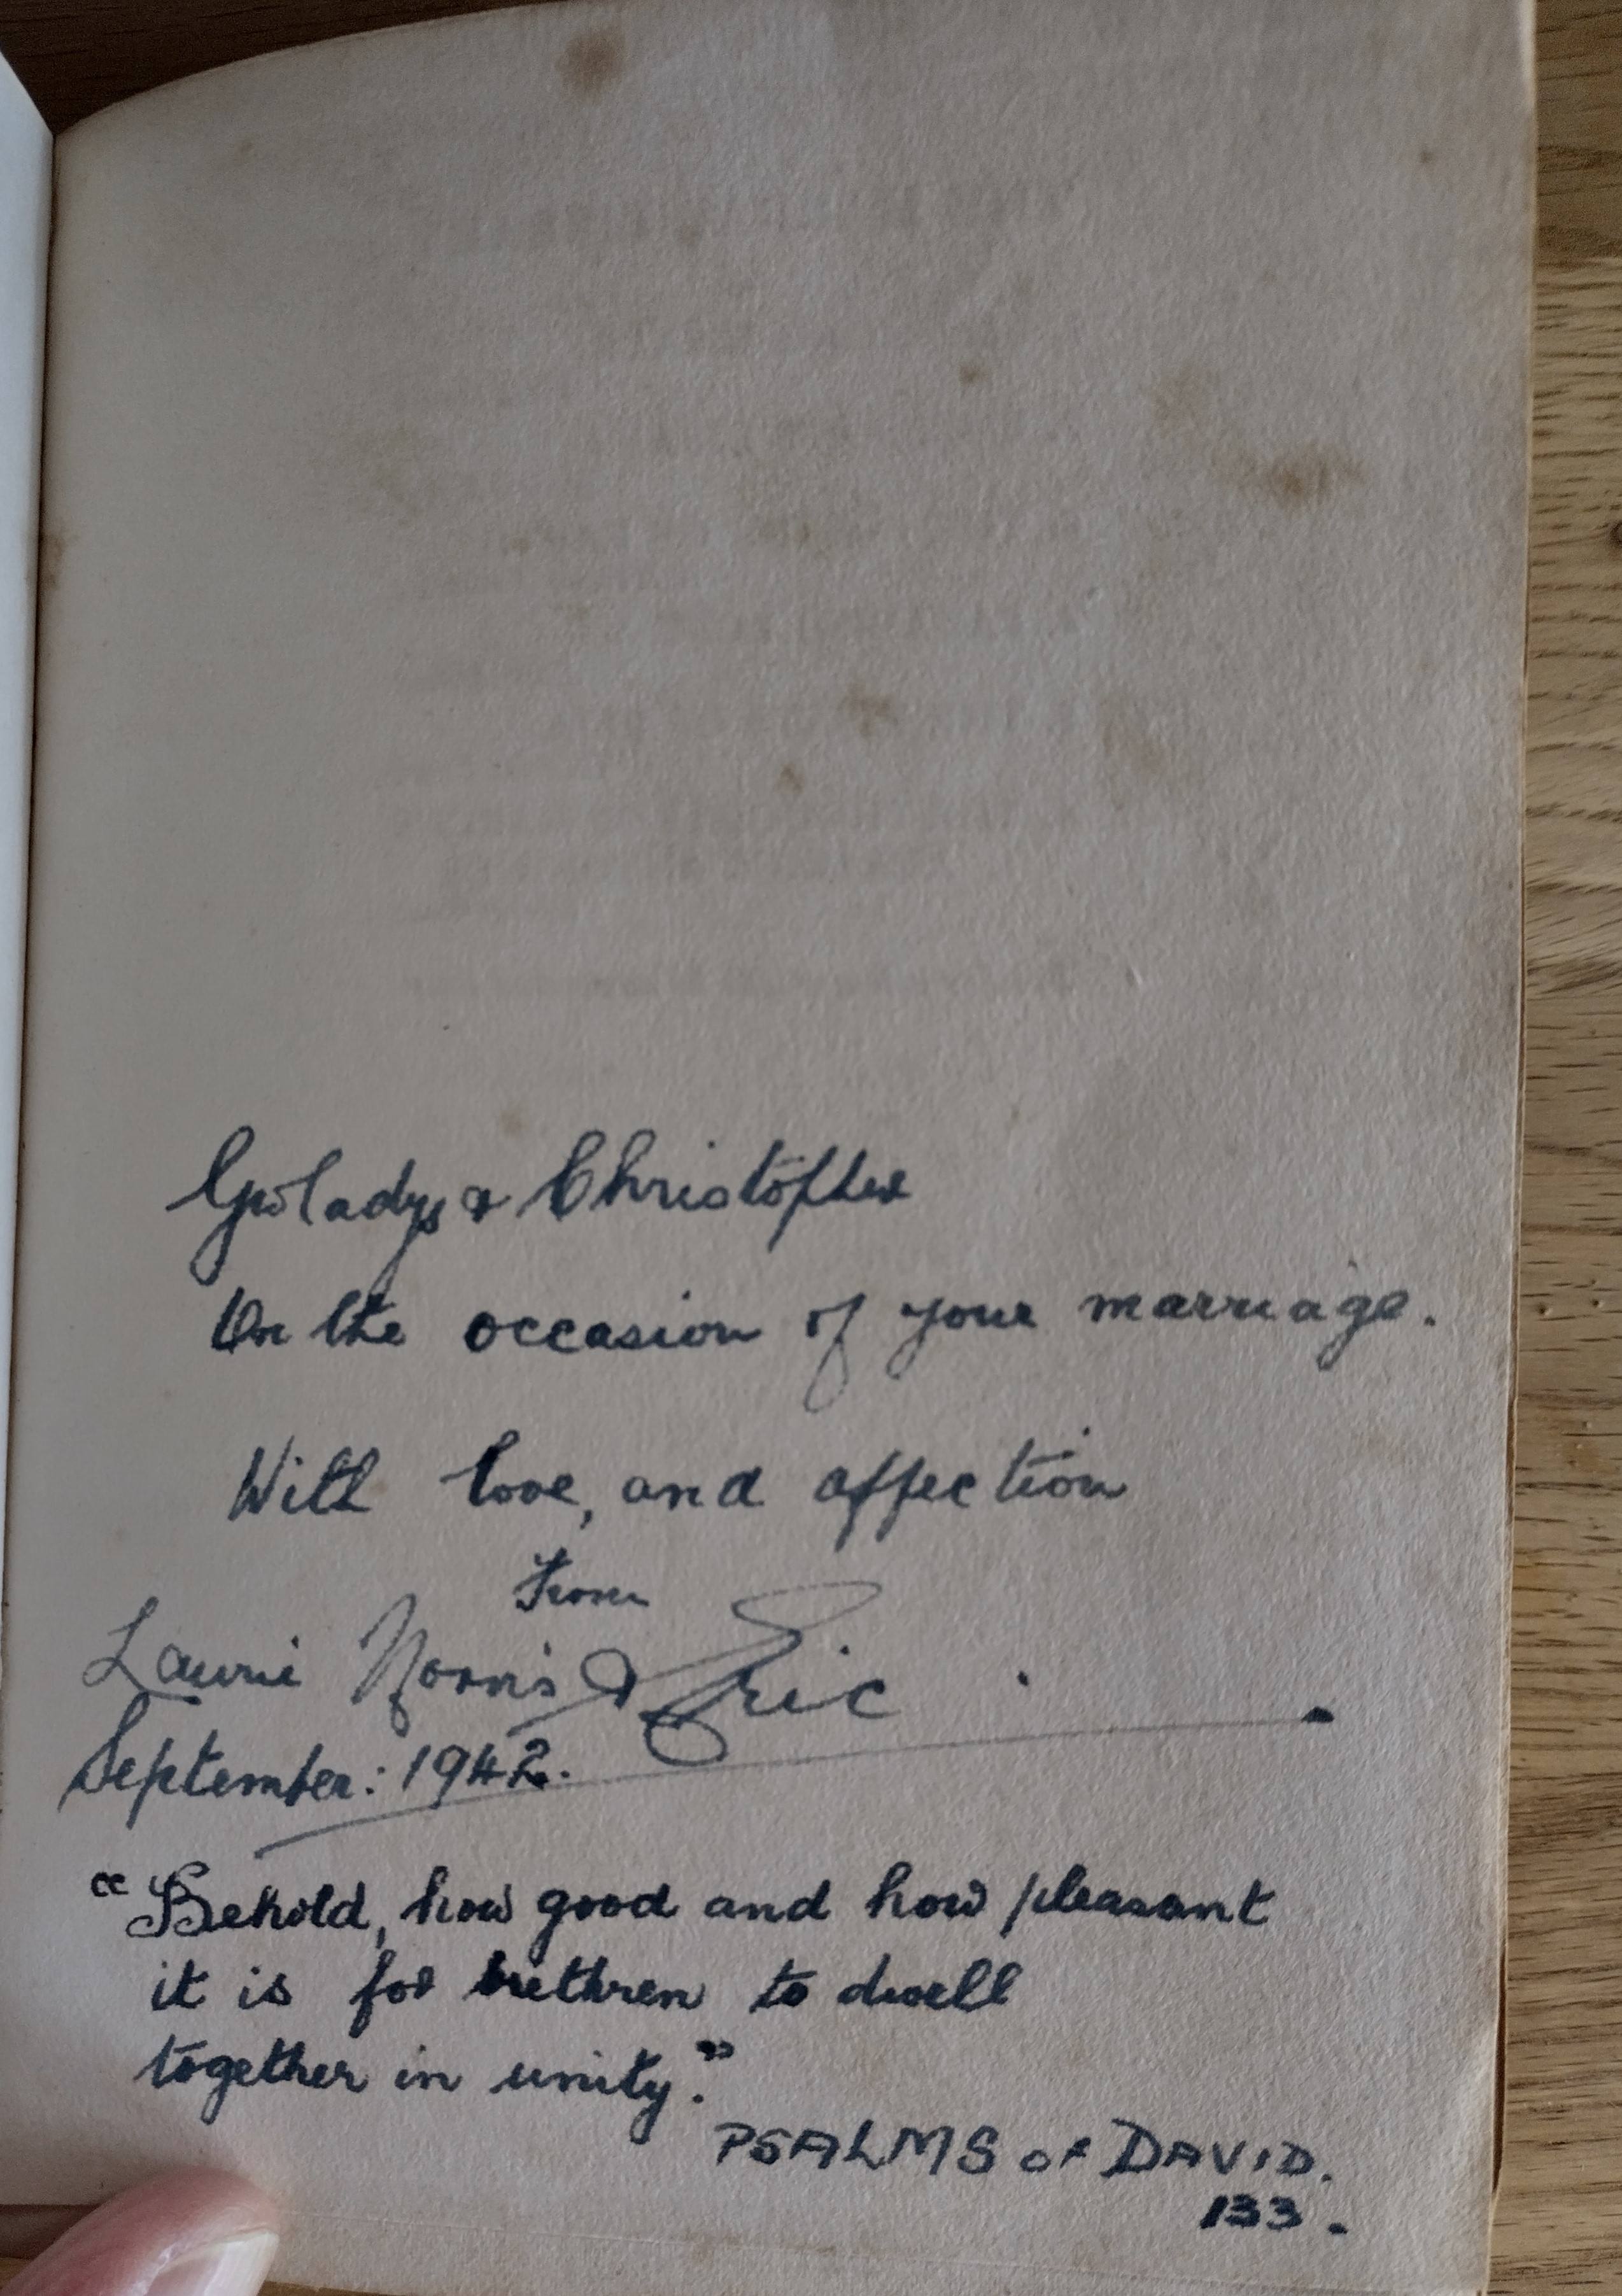 Gwladys & Christopher
On the occasion of your marriage.
With love, and affection
From
Laurie Norris & Eric
September: 1942.
"Behold, how good and how pleasant
it is for brethren to dwell
together in unity."
PSALMS OF DAVID.
133.